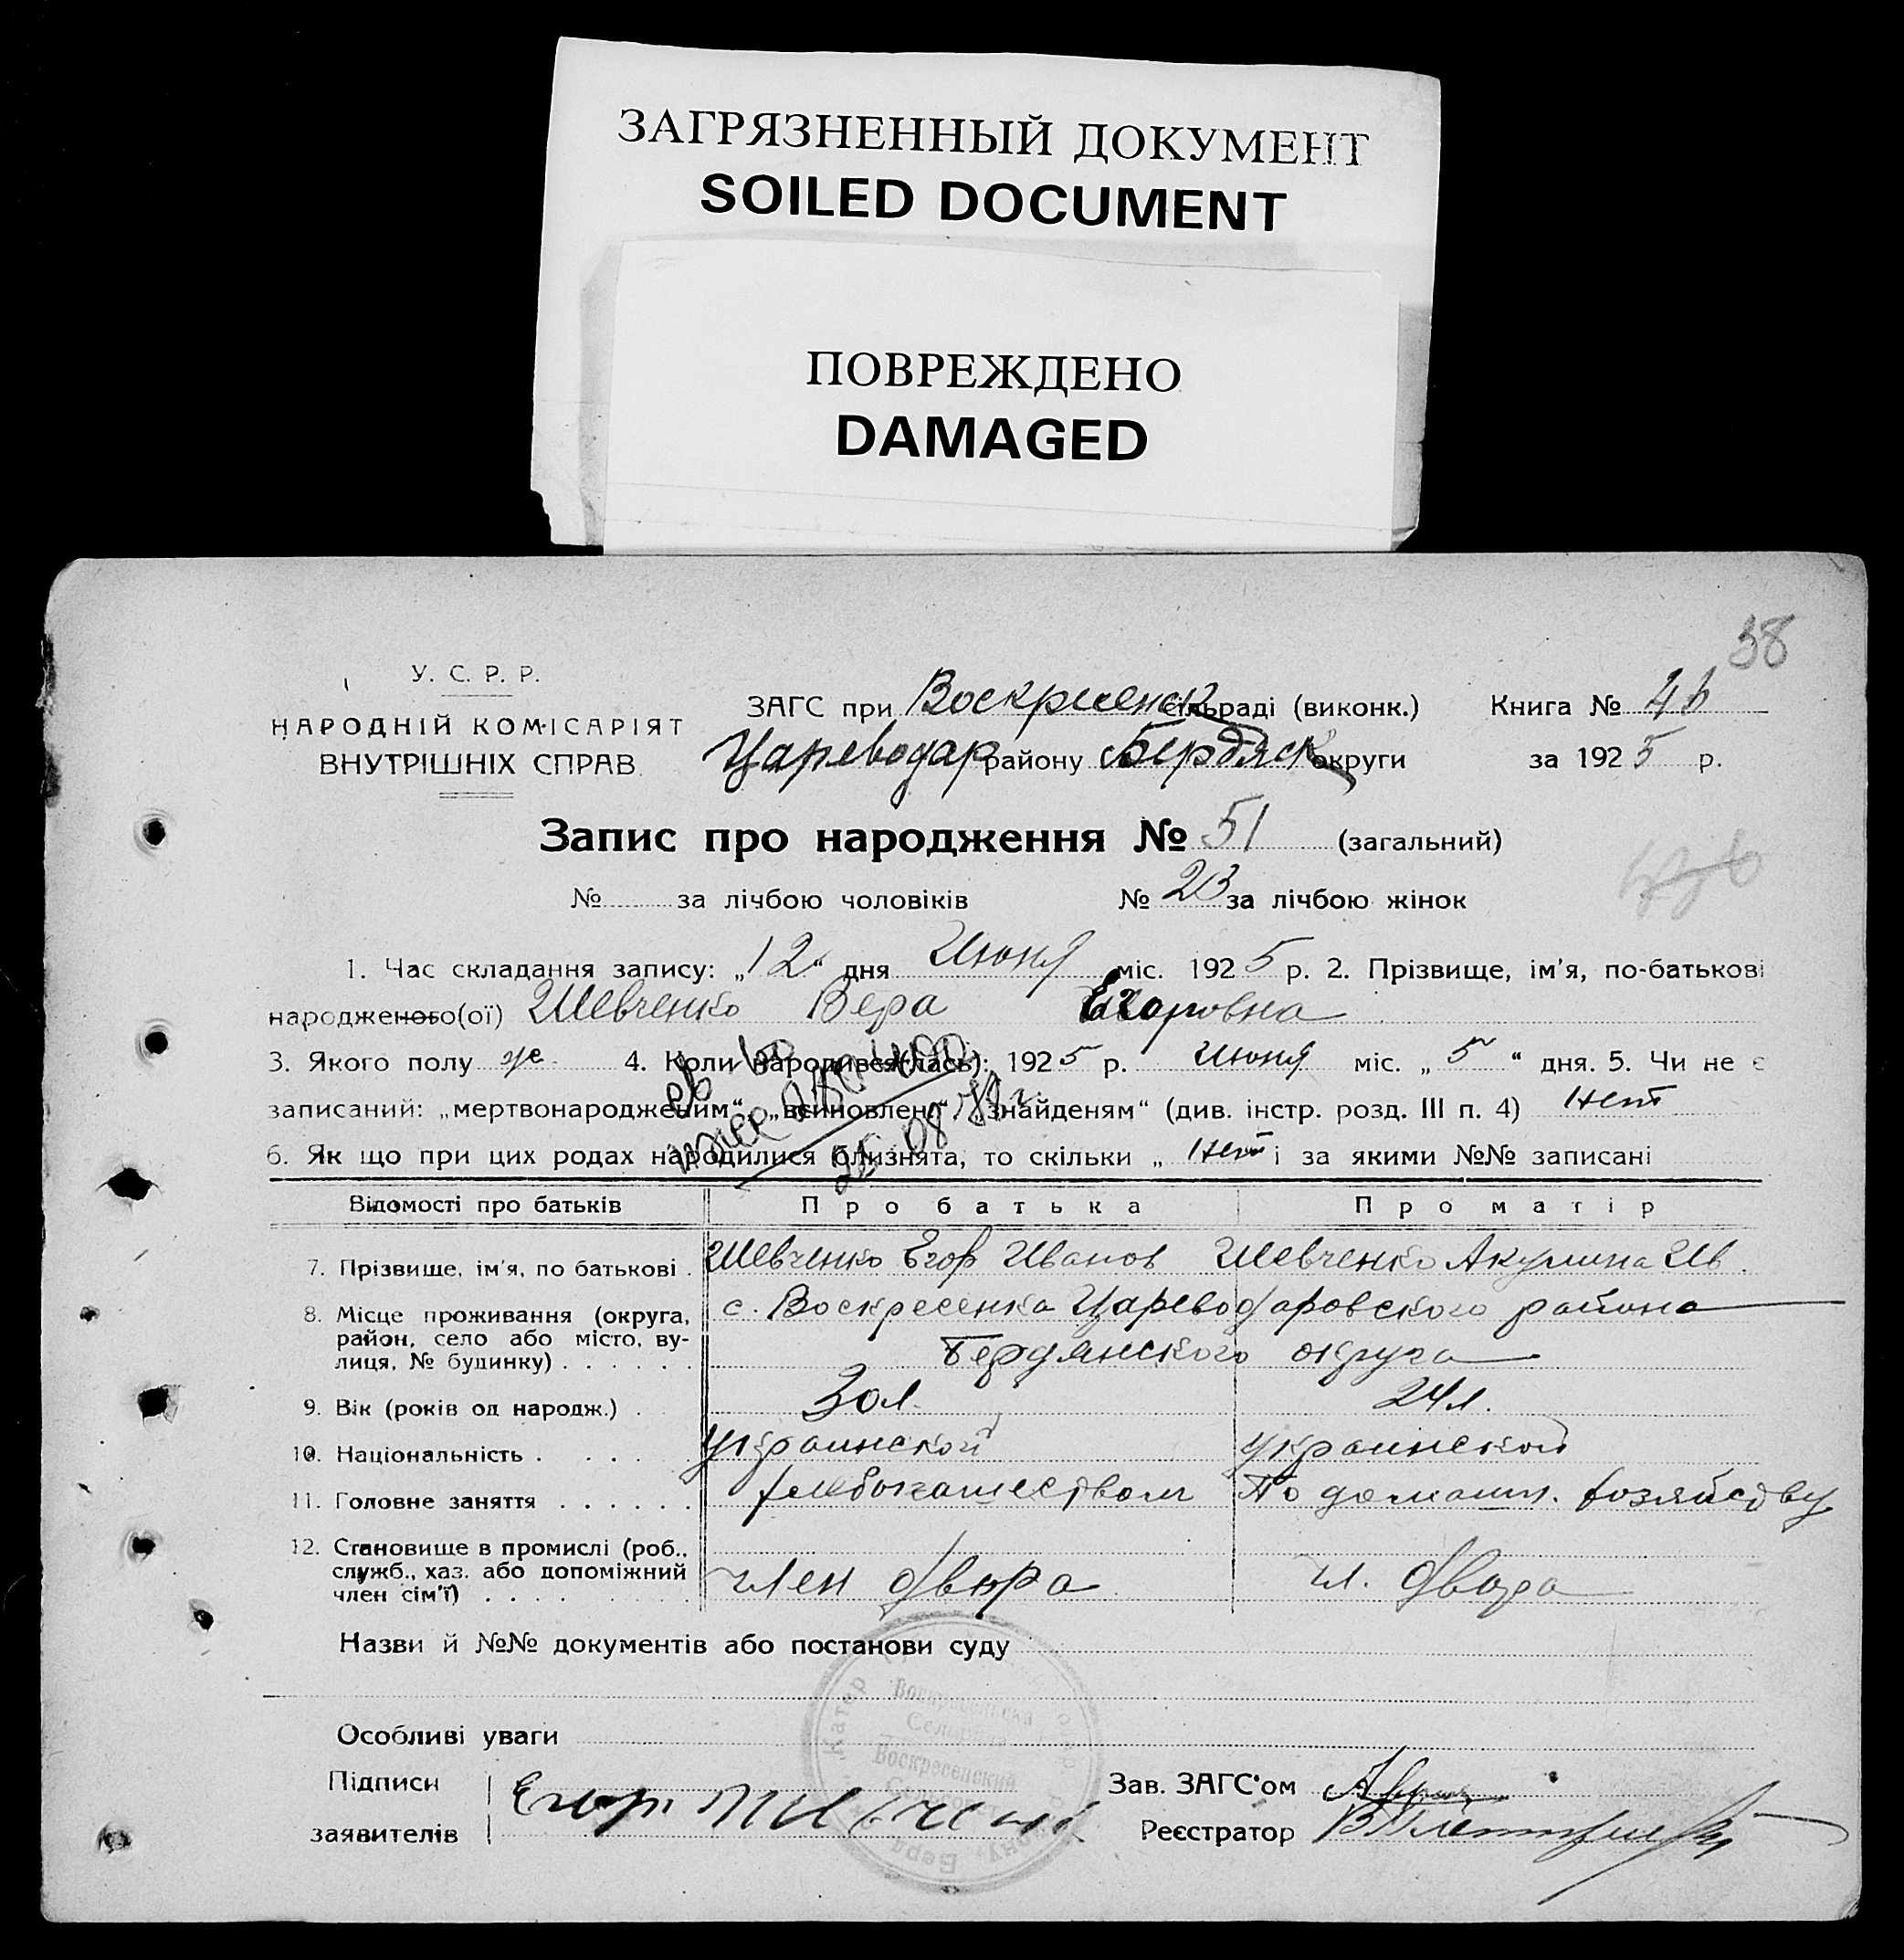 ЗАГРЯЗНЕННЫЙ ДОКУМЕНТ
SOILED DOCUMENT
ПОВРЕЖДЕНО
DAMAGED
38
У. С. Р. Р.
НАРОДНІЙ КОМІСАРІЯТ
ВНУТРІШНІХ СПРАВ
ЗАГС при Воскресенск сільраді (виконк.) Книга № 4б
Цареводар району Бердянск округи за 1925 р.
Запис про народження № 51 (загальний)
№ за лічбою чоловіків № 23 за лічбою жінок
1. Час складання запису: „12“ дня Июня міс. 1925 р. 2. Прізвище, ім'я, по-батькові
народженого(ої) Шевченко Вера Егоровна
3. Якого полу ж 4. Коли народився(лась): 1925 р. июня міс. „5“ дня. 5. Чи не є
записаний: „мертвонародженим“, „всиновлено“, „знайденям“ (див. інстр. розд. III п. 4) нет
6. Як що при цих родах народилися близнята, то скільки „ нет і за якими №№ записані
Відомості про батьків Про батька Про матір
7. Прізвище, ім'я, по батькові . Шевченко Егор Иванов Шевченко Акулина Ив.
8. Місце проживання (округа, район, село або місто, вулиця, № будинку) . . . . . . с. Воскресенка Цареводаровского района
Бердянского округа
9. Вік (років од народж.) . 30л. 24л.
10. Національність . . . . украинской украинской
11. Головне заняття . . . . . . хлебопашеством По домашн. хозяйству
12. Становище в промислі (роб., служб., хаз. або допоміжний член сім'ї) . . . . член двора чл. двора
Назви й №№ документів або постанови суду
Особливі уваги
Підписи Егор Шевченко Зав. ЗАГС'ом
заявителів Реєстратор
Воскресенский